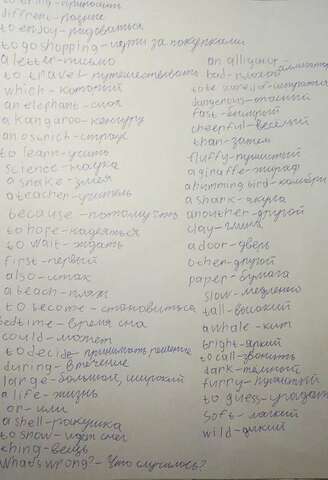 to bring - приносить
diffrent - разные
to enjoy - радоваться
to go shopping - идти за покупками
a letter - письмо
to travel - путешествовать
which - который
an elephant - слон
a kangaroo - кенгуру
an ostrich - страус
to learn - учить
science - наука
a snake - змея
a teacher - учитель
because - потому что
to hope - надеяться
to wait - ждать
first - первый
also - также
a beach - пляж
to become - становиться
bedtime - время сна
could - может
to decide - принимать решение
during - в течение
large - большой, широкий
a life - жизнь
or - или
a shell - ракушка
to snow - идёт снег
thing - вещь
What's wrong? - Что случилось?
an alligator - аллигатор
bad - плохой
to be scared of - испугаться
dangerous - опасный
fast - быстрый
cheerful - весёлый
than - затем
fluffy - пушистый
a giraffe - жираф
a humming bird - колибри
a shark - акула
another - другой
clay - глина
a door - дверь
other - другой
paper - бумага
slow - медленно
tall - высокий
a whale - кит
bright - яркий
to call - звонить
dark - тёмный
furry - пушистый
to guess - угадать
soft - мягкий
wild - дикий